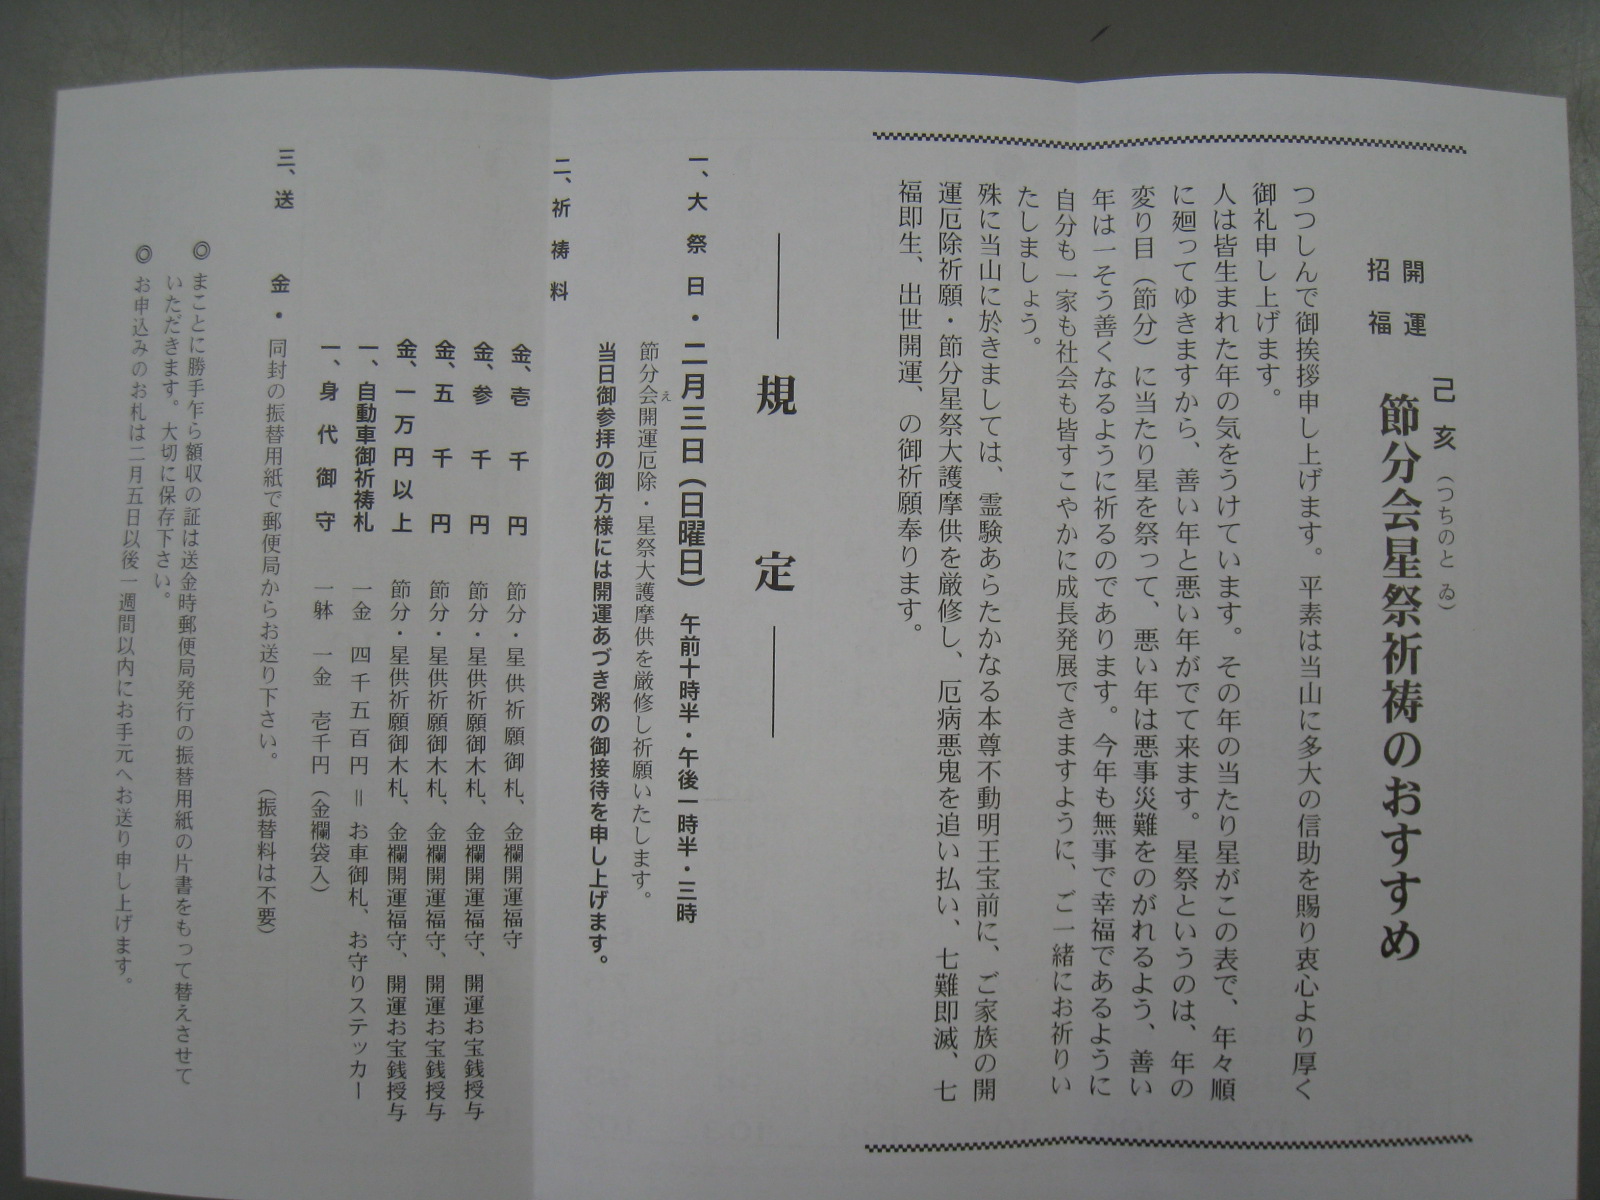 己亥（つちのと　ゐ）
開運
招福
節分会星祭祈祷のおすすめ
つつしんで御挨拶申し上げます。平素は当山に多大の信助を賜り衷心より厚く
御礼申し上げます。
人は皆生まれた年の気をうけています。その年の当たり星がこの表で、年々順
に廻ってゆきますから、善い年と悪い年がでて来ます。星祭というのは、年の
変り目（節分）に当たり星を祭って、悪い年は悪事災難をのがれるよう、善い
年は一そう善くなるように祈るのであります。今年も無事で幸福であるように
自分も一家も社会も皆すこやかに成長発展できますように、ご一緒にお祈りい
たしましょう。
殊に当山に於きましては、霊験あらたかなる本尊不動明王宝前に、ご家族の開
運厄除祈願・節分星祭大護摩供を厳修し、厄病悪鬼を追い払い、七難即滅、七
福即生、出世開運、の御祈願奉ります。
規定
一、大祭日・二月三日（日曜日）午前十時半・午後一時半・三時
節分会開運厄除・星祭大護摩供を厳修し祈願いたします。
え
当日御参拝の御方様には開運あづき粥の御接待を申し上げます。
二、祈祷料
金、壱千円　節分・星供祈願御札、金襴開運福守
金、参千円　節分・星供祈願御木札、金襴開運福守、開運お宝銭授与
金、五千円　節分・星供祈願御木札、金襴開運福守、開運お宝銭授与
金、一万円以上　節分・星供祈願御木札、金襴開運福守、開運お宝銭授与
一、自動車御祈祷札　一金　四千五百円＝お車御札、お守りステッカー
一、身代御守　一躰　一金　壱千円（金襴袋入）
三、送金・同封の振替用紙で郵便局からお送り下さい。（振替料は不要）
◎まことに勝手乍ら額収の証は送金時郵便局発行の振替用紙の片書をもって替えさせて
いただきます。大切に保存下さい。
◎お申込みのお札は二月五日以後一週間以内にお手元へお送り申し上げます。